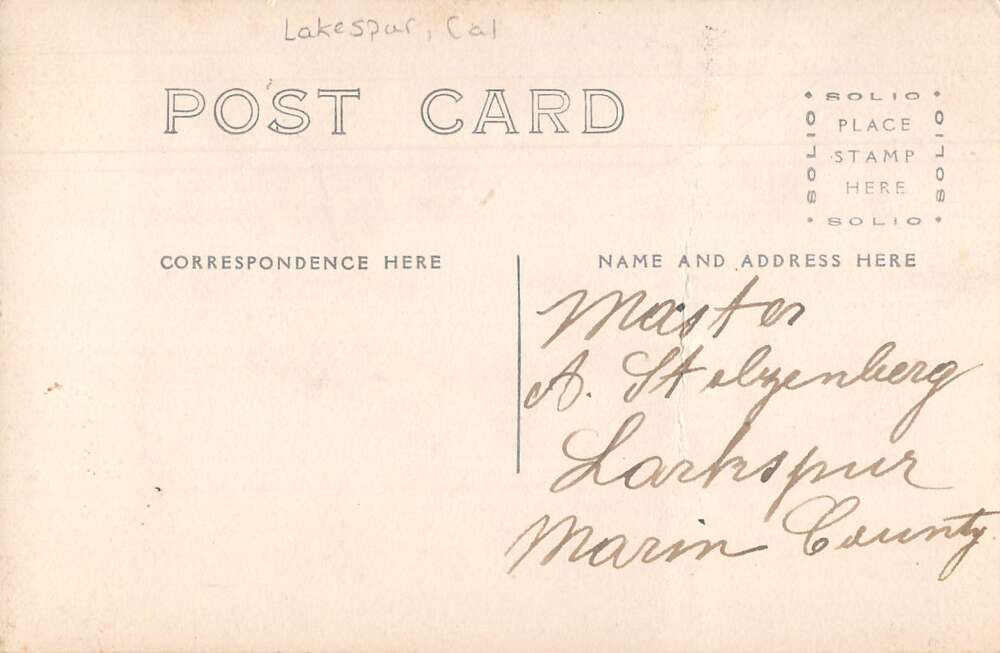 Lakespur, Cal
POST CARD
SOLIO
SOLIO PLACE SOLIO
STAMP
HERE
SOLIO
CORRESPONDENCE HERE
NAME AND ADDRESS HERE
Master
A. Stolzenberg
Larkspur
Marin County.